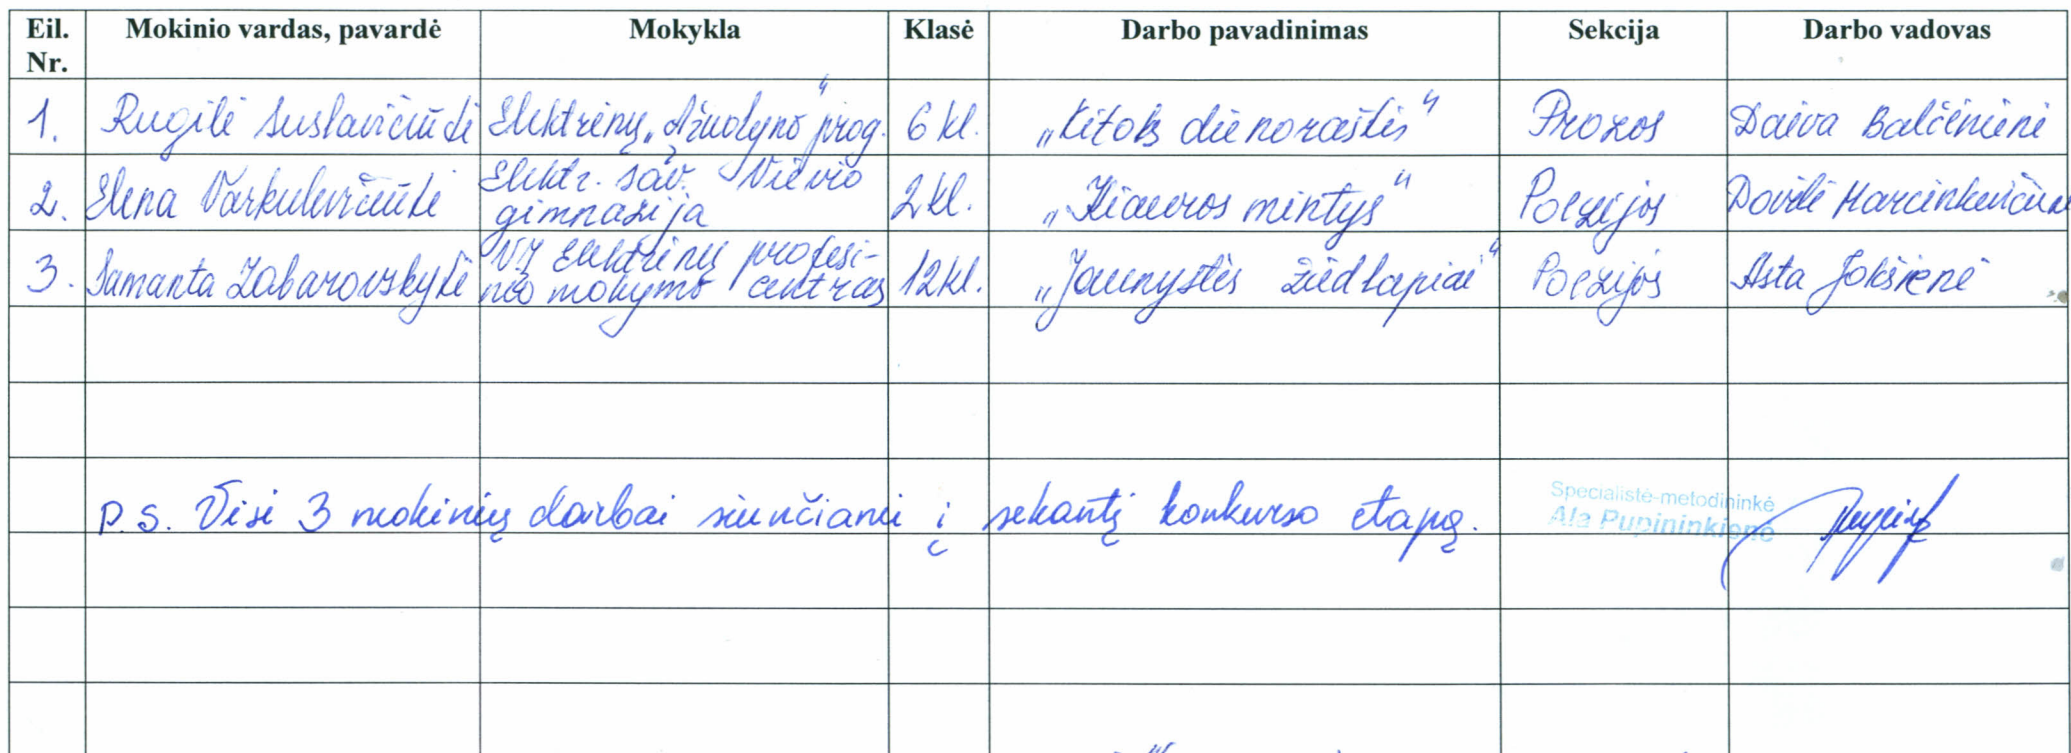 Eil. Nr. Mokinio vardas, pavardė Mokykla Klasė Darbo pavadinimas Sekcija Darbo vadovas
1. Rugilė Suslavičiūtė Elektrėnų „Ąžuolyno“ prog. 6 kl. „Kitoks dienoraštis“ Prozos Daiva Balčėnienė
2. Elena Varkulevičiūtė Elektr. sav. Vievio gimnazija 2 kl. „Kiauros mintys“ Poezijos Dovilė
3. Samanta Zabarovskytė VŠĮ Elektrėnų profesinio mokymo centras 12 kl. „Jaunystės žiedlapiai“ Poezijos Asta Jokšienė
P.S. Visi 3 mokinių darbai siunčiami į sekantį konkurso etapą.
Specialistė-metodininkė
Ala Pupininkienė